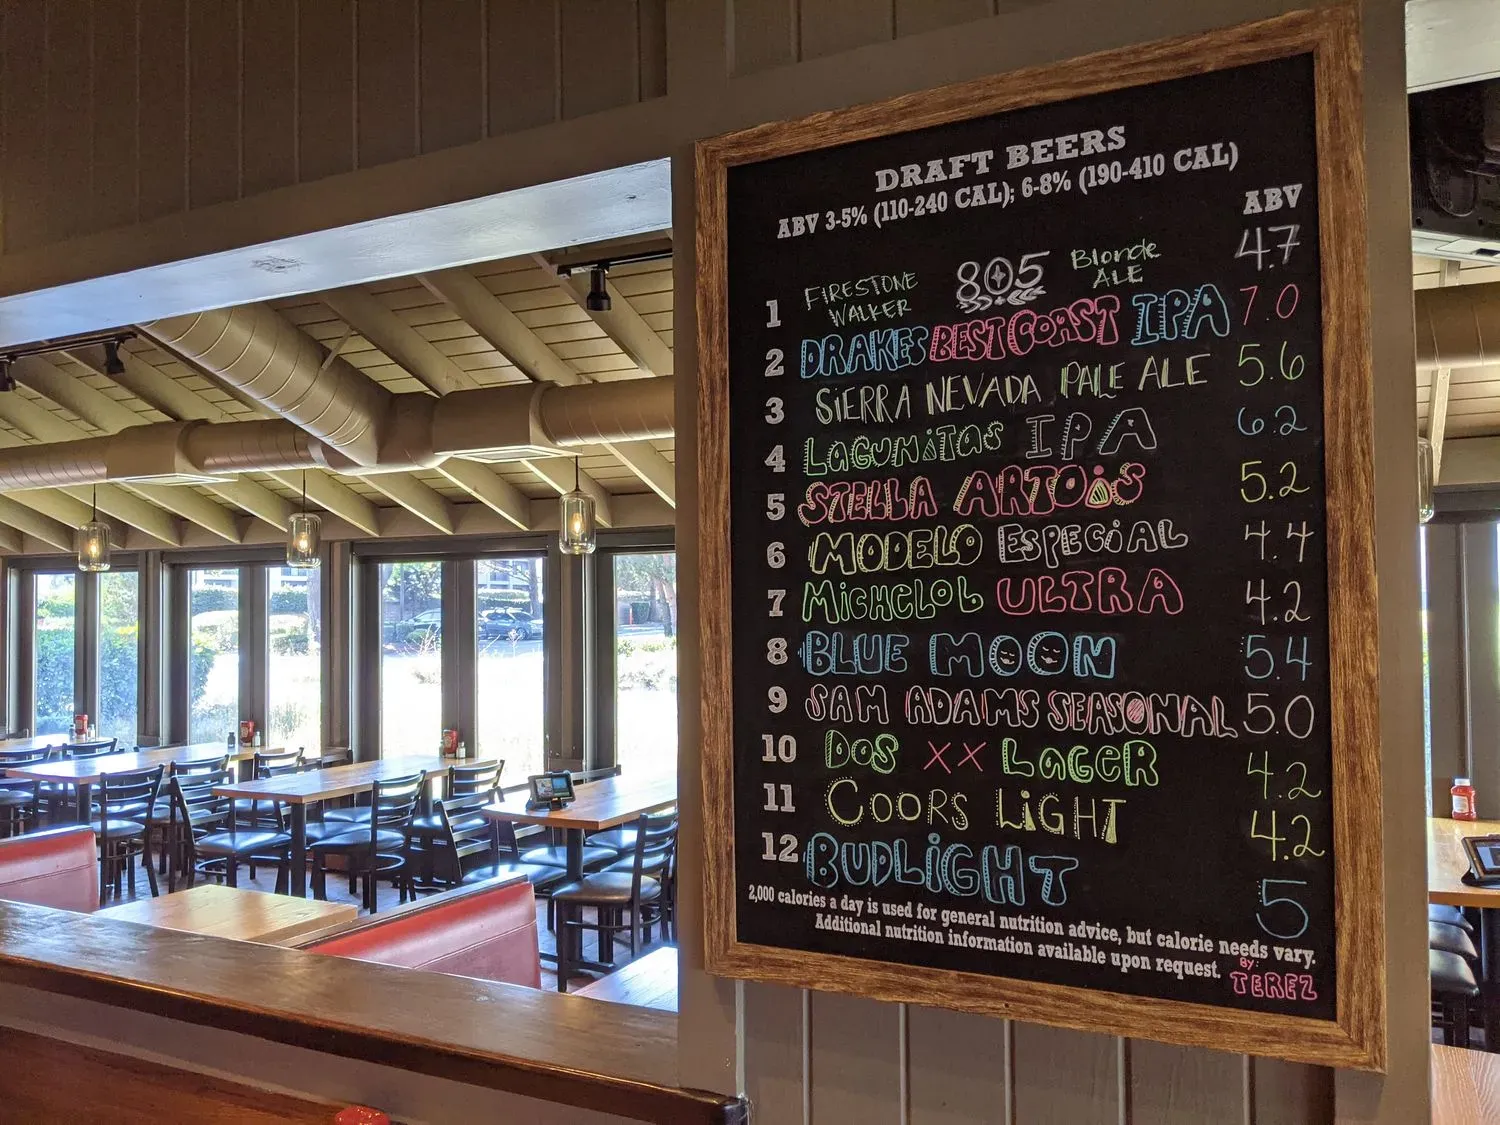 DRAFT BEERS
ABV 3-5% (110-240 CAL); 6-8% (190-410 CAL)
ABV
1 FIRESTONE WALKER 805 Blonde ALE 4.7
2 DRAKES BEST COAST IPA 7.0
3 SIERRA NEVADA PALE ALE 5.6
4 LAGUNITAS IPA 6.2
5 STELLA ARTOIS 5.2
6 MODELO ESPECIAL 4.4
7 MICHELOB ULTRA 4.2
8 BLUE MOON 5.4
9 SAM ADAMS SEASONAL 5.0
10 DOS XX LAGER 4.2
11 COORS LIGHT 4.2
12 BUDLIGHT 5
2,000 calories a day is used for general nutrition advice, but calorie needs vary.
Additional nutrition information available upon request.
BY: TEREZ